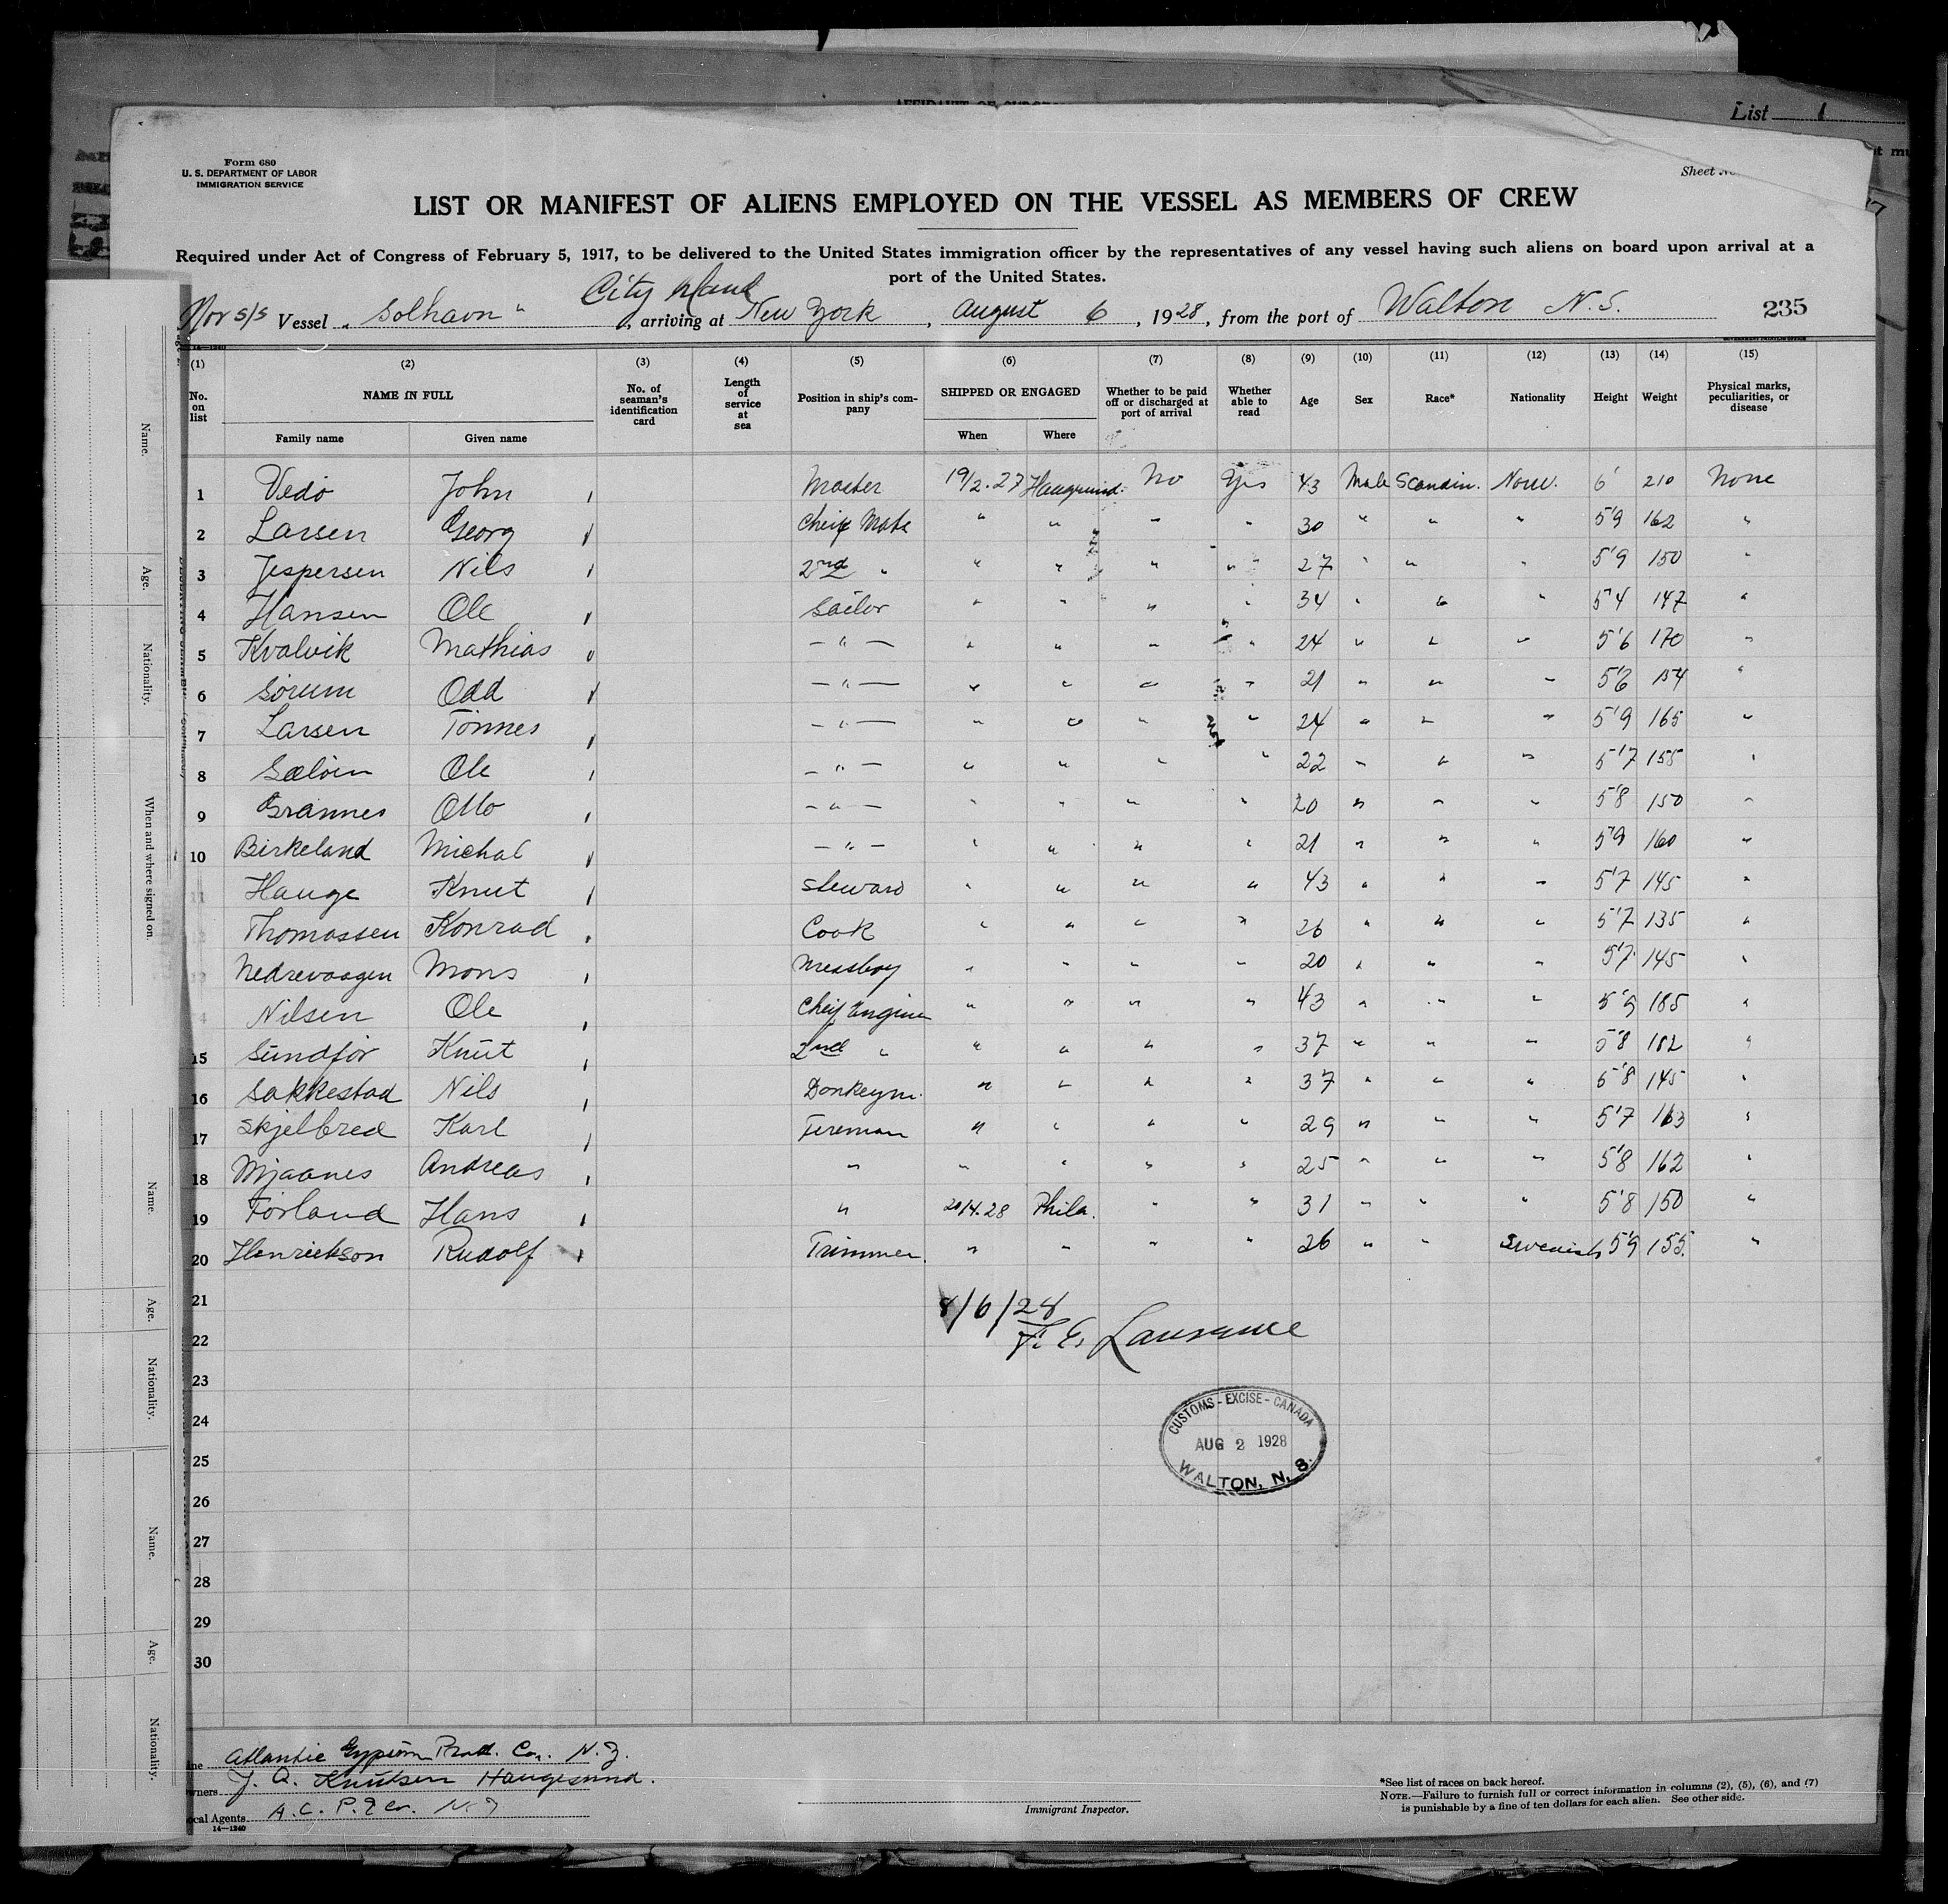 List 1
Form 680
U. S. DEPARTMENT OF LABOR
IMMIGRATION SERVICE
Sheet No.
LIST OR MANIFEST OF ALIENS EMPLOYED ON THE VESSEL AS MEMBERS OF CREW
Required under Act of Congress of February 5, 1917, to be delivered to the United States immigration officer by the representatives of any vessel having such aliens on board upon arrival at a
port of the United States.
City Island
Nor s/s Vessel "Solhavn", arriving at New York, August 6, 1928, from the port of Walton N.S. 235
(1) (2) (3) (4) (5) (6) (7) (8) (9) (10) (11) (12) (13) (14) (15)
No. on list NAME IN FULL No. of seaman's identification card Length of service at sea Position in ship's company SHIPPED OR ENGAGED Whether to be paid off or discharged at port of arrival Whether able to read Age Sex Race* Nationality Height Weight Physical marks, peculiarities, or disease
Family name Given name When Where
1 Vedö John Master 19/2.27 Haugesund. No Yes 43 Male Scandin. Norw. 6' 210 None
2 Larsen Georg Cheif Mate " " " " 30 " " " 5'9 162 "
3 Jespersen Nils 2nd " " " " " 27 " " " 5'9 150 "
4 Hansen Ole Sailor " " " " 34 " " " 5'4 147 "
5 Kvalvik Mathias — " — " " " " 24 " " " 5'6 170 "
6 Sörum Odd — " — " " " " 21 " " " 5'6 154 "
7 Larsen Tönnes — " — " " " " 24 " " " 5'9 165 "
8 Sælöen Ole — " — " " " " 22 " " " 5'7 155 "
9 Grannes Otto — " — " " " " 20 " " " 5'8 150 "
10 Birkeland Michal — " — " " " " 21 " " " 5'9 160 "
11 Hauge Knut Steward " " " " 43 " " " 5'7 145 "
12 Thomassen Konrad Cook " " " " 26 " " " 5'7 135 "
13 Nedrevaagen Mons Messboy " " " " 20 " " " 5'7 145 "
14 Nilsen Ole Cheif Engine " " " " 43 " " " 5'9 185 "
15 Sundför Knut 2nd " " " " " 37 " " " 5'8 182 "
16 Sakkestad Nils Donkeym. " " " " 37 " " " 5'8 145 "
17 Skjelbred Karl Fireman " " " " 29 " " " 5'7 163 "
18 Mjaanes Andreas " " " " " 25 " " " 5'8 162 "
19 Förland Hans " 20/4.28 Phila. " " 31 " " " 5'8 150 "
20 Henrickson Rudolf Trimmer. " " " " 26 " " Swedish 5'9 155. "
21
8/6/28
22
F. E. Lawrence
23
24
25
26
27
28
29
30
CUSTOMS - EXCISE - CANADA
AUG 2 1928
WALTON, N. S.
Atlantic Gypsum Prod. Co. N.Y.
wners J. A. Knutsen Haugesund.
ocal Agents A. C. P. & Co. N.Y
14—1240
Immigrant Inspector.
*See list of races on back hereof.
NOTE.—Failure to furnish full or correct information in columns (2), (5), (6), and (7)
is punishable by a fine of ten dollars for each alien. See other side.
Name.
Age.
Nationality.
When and where signed on.
Name.
Age.
Nationality.
Name.
Age.
Nationality.